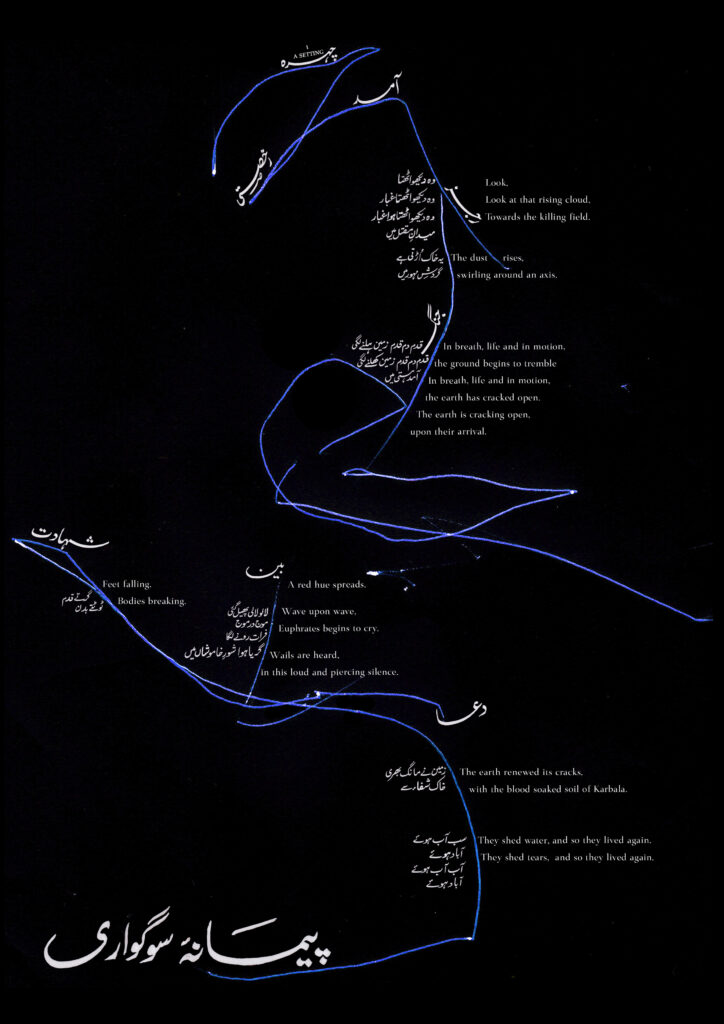 1
A SETTING
چہرہ
آمد
رخصتی
وہ دیکھو اٹھتا
وہ دیکھو اٹھتا غبار
وہ دیکھو اٹھتا ہوا غبار
میدانِ مقتل میں
Look,
Look at that rising cloud,
Towards the killing field.
یہ خاک اُڑتی ہے
گردشِ محور میں
The dust rises,
swirling around an axis.
قدم دم قدم زمین ہلنے لگی
قدم دم قدم زمین کھلنے لگی
آمد ہستی میں
In breath, life and in motion,
the ground begins to tremble
In breath, life and in motion,
the earth has cracked open.
The earth is cracking open,
upon their arrival.
شہادت
گرتے قدم
ٹوٹتے بدن
Feet falling,
Bodies breaking.
بین
A red hue spreads.
لالو لالی پھیل گئی
موج در موج
فرات رونے لگا
گریا ہوا شورِ خاموشاں میں
Wave upon wave,
Euphrates begins to cry.
Wails are heard,
in this loud and piercing silence.
دعا
زمین نے مانگ بھری
خاک شفاء سے
The earth renewed its cracks,
with the blood soaked soil of Karbala.
سب آب ہوئے
آباد ہوئے
آب آب ہوئے
آباد ہوئے
They shed water, and so they lived again.
They shed tears, and so they lived again.
پیمانۂ سوگواری